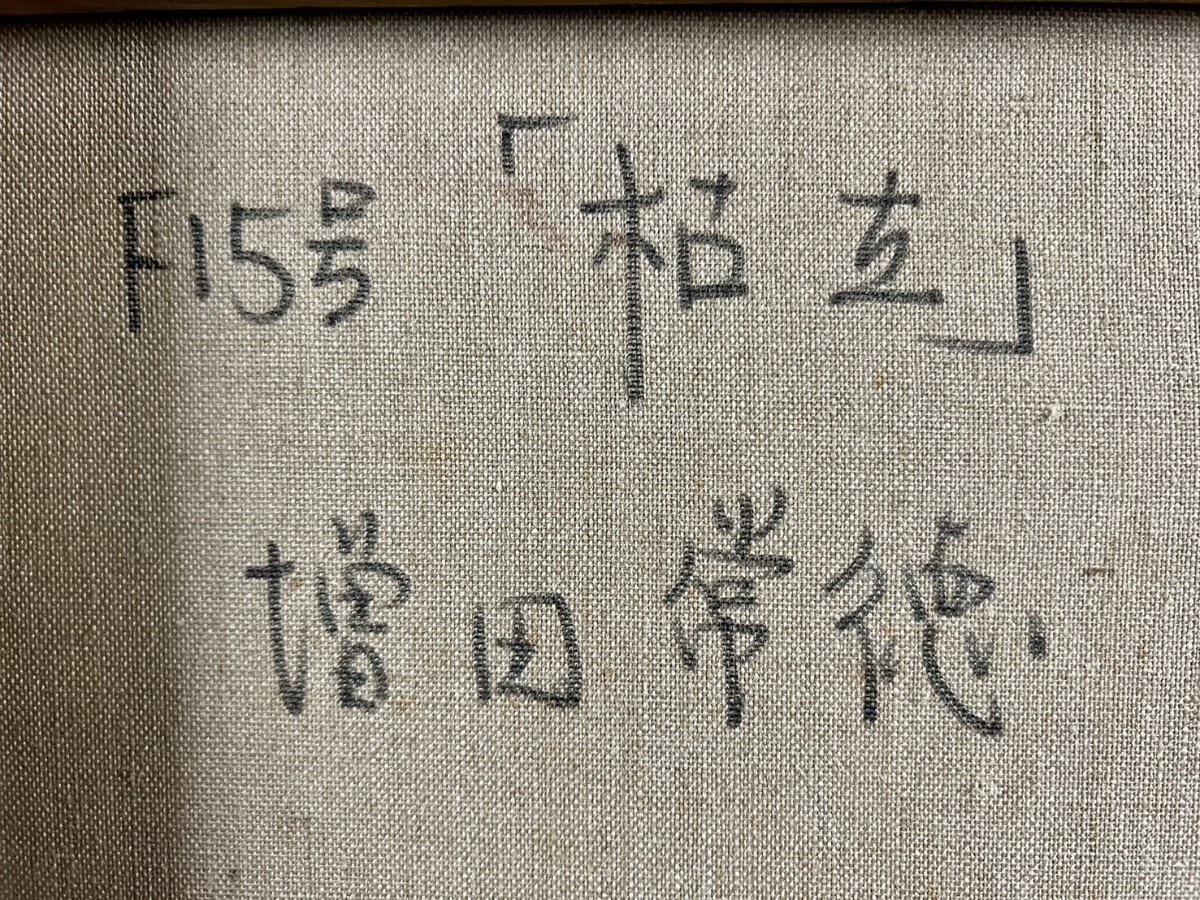 F15号 「枯立」
増田常徳